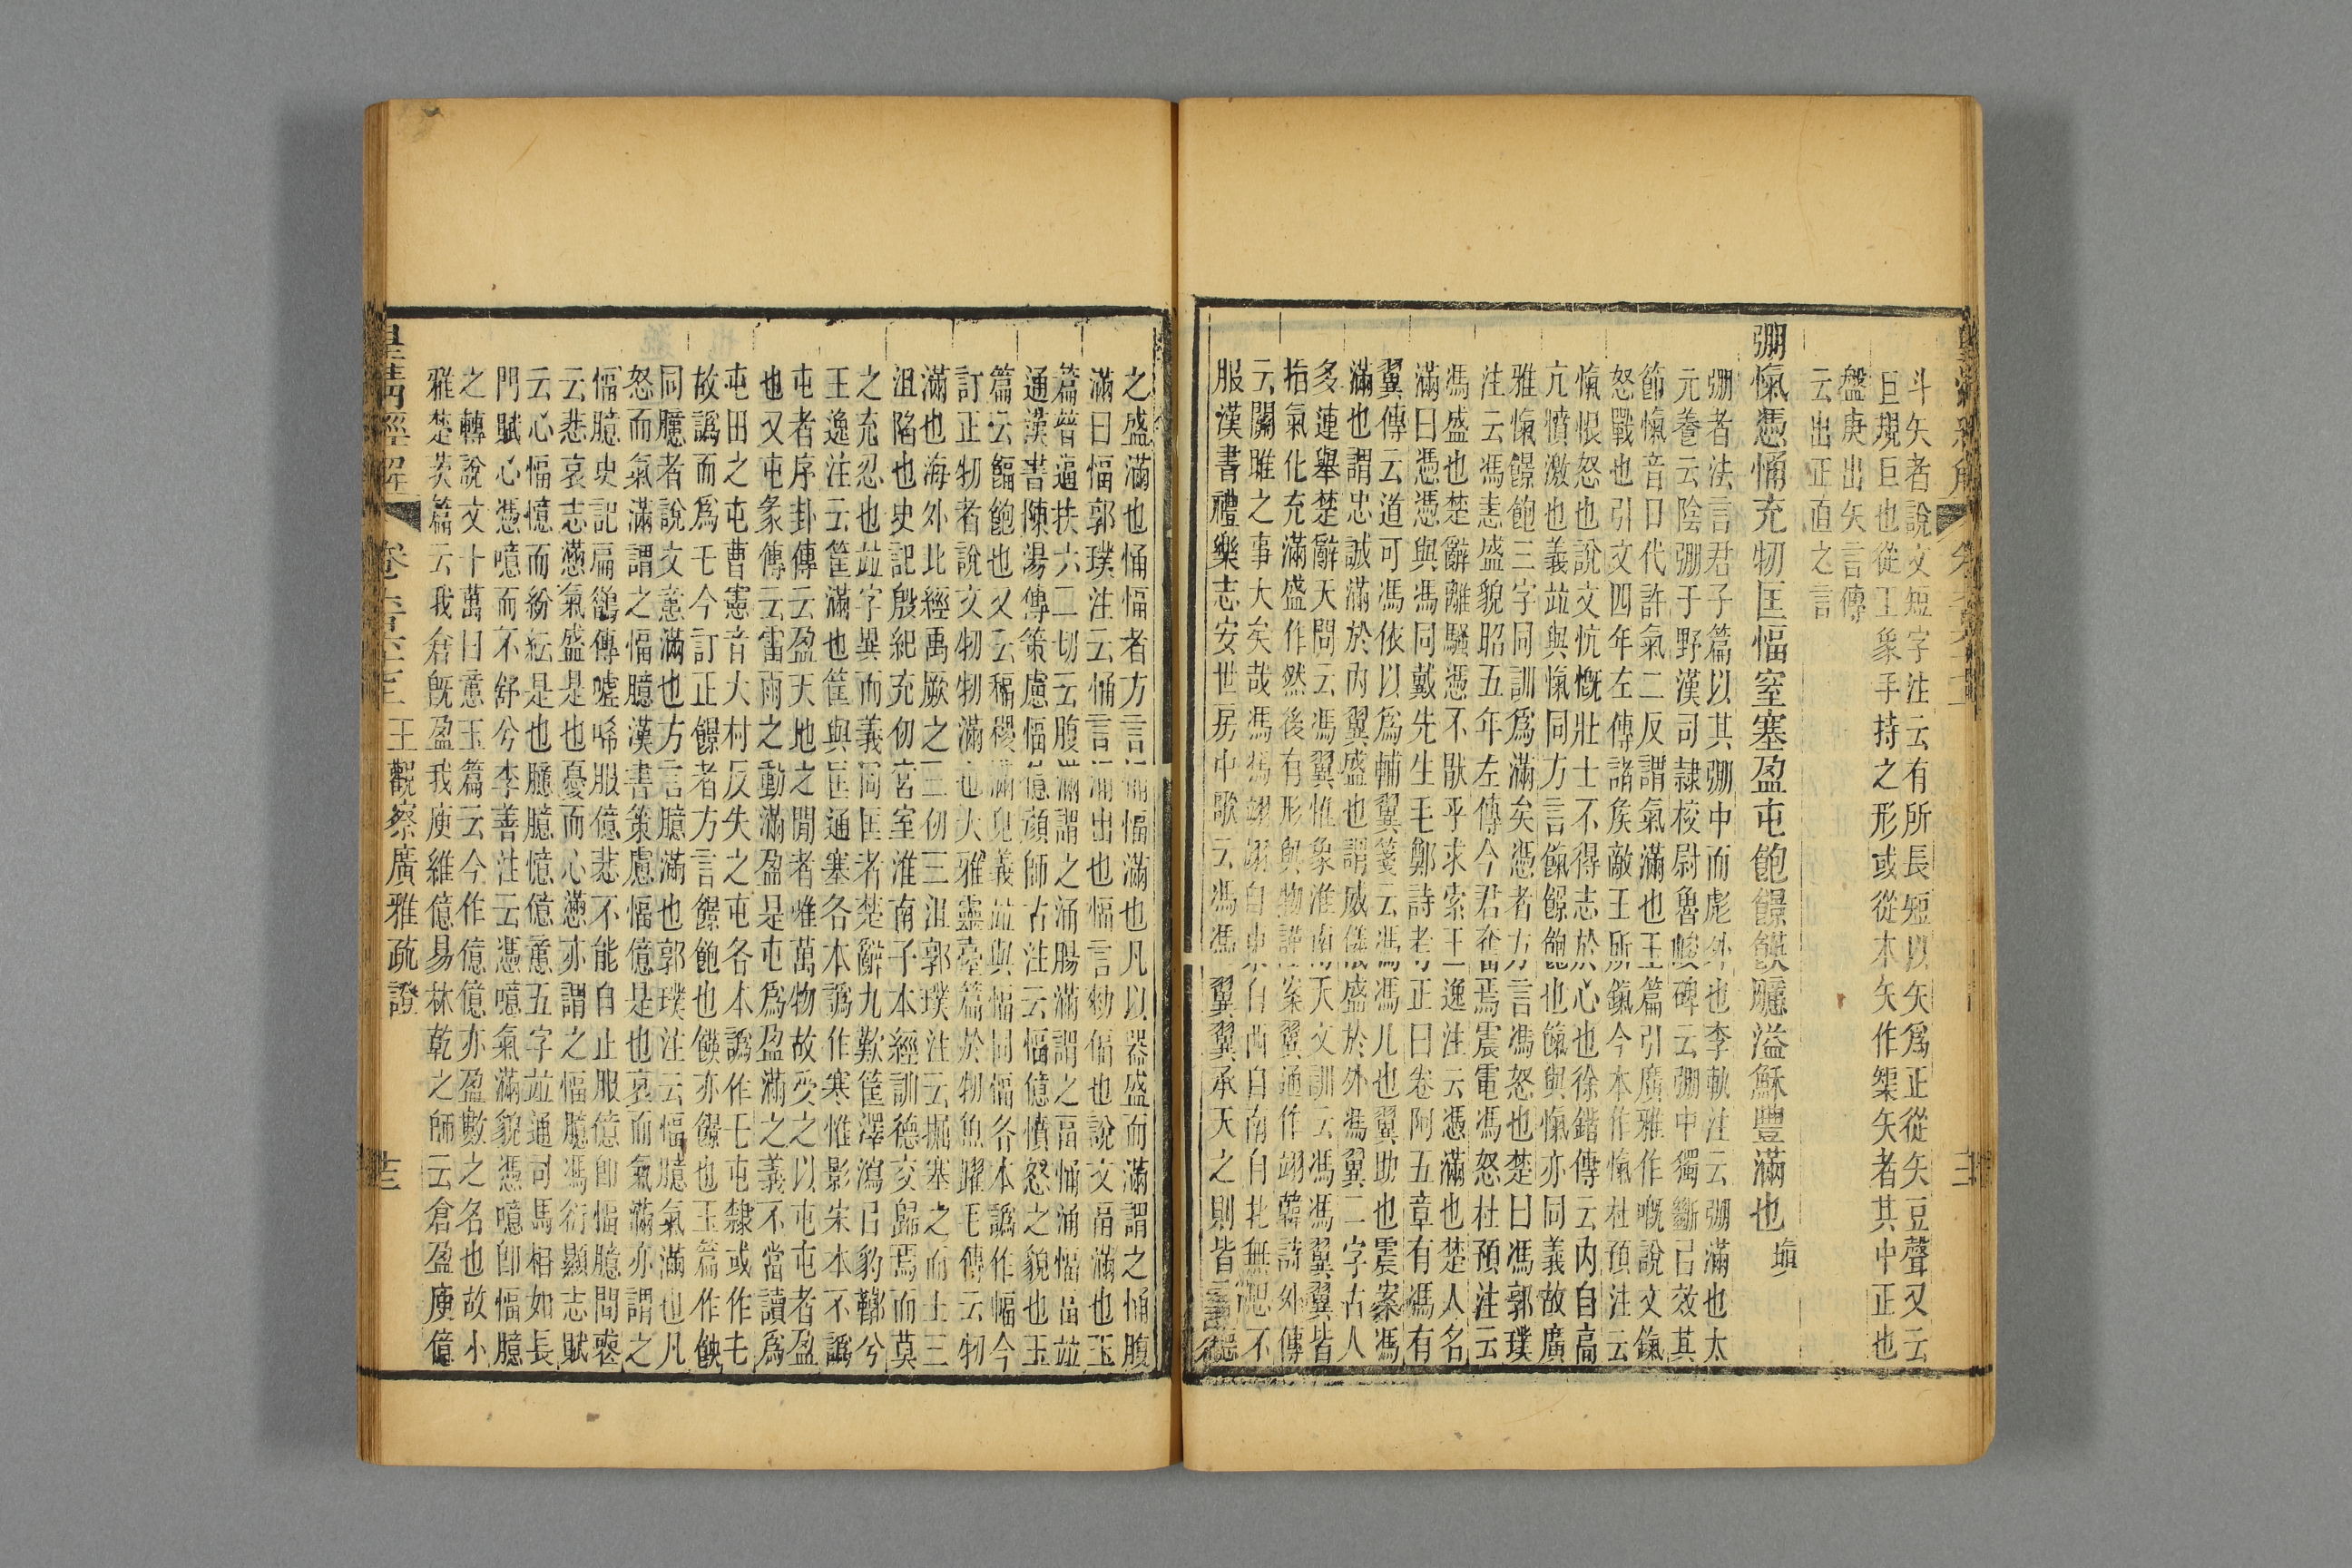 斗矢者說文短字注云有所長短以矢爲正從矢豆聲又云
巨規巨也從工象手持之形或從木矢作榘矢者其中正也
盤庚出矢言傳
云出正直之言
弸愾憑悀充牣匡愊窒塞盈屯飽饛䭒臆溢穌豐滿也
弸者法言君子篇以其弸中而彪外也李軌注云弸滿也太
元養云陰弸于野漢司隷校尉魯峻碑云弸中獨斷已效其
節愾音口代許氣二反謂氣滿也玉篇引廣雅作嘅說文鎎
怒戰也引文四年左傳諸矦敵王所鎎今本作愾杜預注云
愾恨怒也說文忼慨壯士不得志於心也徐鍇傳云內自高
亢憤激也義竝與愾同方言餼餯飽也餼與愾亦同義故廣
雅愾餯飽三字同訓爲滿矣憑者方言馮怒也楚曰馮郭璞
注云馮恚盛貌昭五年左傳今君奮焉震電馮怒杜預注云
馮盛也楚辭離騷憑不猒乎求索王逸注云憑滿也楚人名
滿曰憑憑與馮同戴先生毛鄭詩考正曰卷阿五章有馮有
翼傳云道可馮依以爲輔翼箋云馮馮几也翼助也震案馮
滿也謂忠誠滿於內翼盛也謂威儀盛於外馮翼二字古人
多連舉楚辭天問云馮翼惟象淮南天文訓云馮馮翼翼皆
指氣化充滿盛作然後有形與物謹案翼通作翊韓詩外傳
云關雎之事大矣哉馮馮翊翊自東自西自南自北無思不
服漢書禮樂志安世房中歌云馮馮翼翼承天之則皆言德
之盛滿也悀愊者方言悀愊滿也凡以器盛而滿謂之悀腹
滿曰愊郭璞注云悀言涌出也愊言勑偪也說文畐滿也玉
篇普逼扶六二切云腹滿謂之涌腸滿謂之畐悀涌愊畐竝
通漢書陳湯傳策慮愊億顏師古注云愊億憤怒之貌也玉
篇云餾飽也又云稫稷滿皃義竝與愊同愊各本譌作幅今
訂正牣者說文牣牣滿也大雅靈臺篇於牣魚躍毛傳云牣
滿也海外北經禹厥之三仞三沮郭璞注云掘塞之而土三
沮陷也史記殷紀充仞宮室淮南子本經訓德交歸焉而莫
之充忍也竝字異而義同匡者楚辭九歎筐澤瀉㠯豹鞹兮
王逸注云筐滿也筐與匡通塞各本譌作寒惟影宋本不譌
屯者序卦傳云盈天地之閒者唯萬物故受之以屯屯者盈
也又屯彖傳云雷雨之動滿盈是屯爲盈滿之義不當讀爲
屯田之屯曹憲音大村反失之屯各本譌作乇屯隸或作乇
故譌而爲乇今訂正饛者方言饛飽也䭒亦饛也玉篇作䬬
同臆者說文薏滿也方言臆滿也郭璞注云愊臆氣滿也凡
怒而氣滿謂之愊臆漢書策慮愊億是也哀而氣滿亦謂之
愊臆史記扁鵲傳噓唏服億悲不能自止服億卽愊臆問喪
云悲哀志懣氣盛是也憂而心懣亦謂之愊臆馮衍顯志賦
云心愊憶而紛紜是也臆臆憶億薏五字竝通司馬相如長
門賦心憑噫而不舒兮李善注云憑噫氣滿貌憑噫卽愊臆
之轉說文十萬曰薏玉篇云今作億億亦盈數之名也故小
雅楚茨篇云我倉旣盈我庾維億易林乾之師云倉盈庾億
皇淸經解 王觀察廣雅疏證